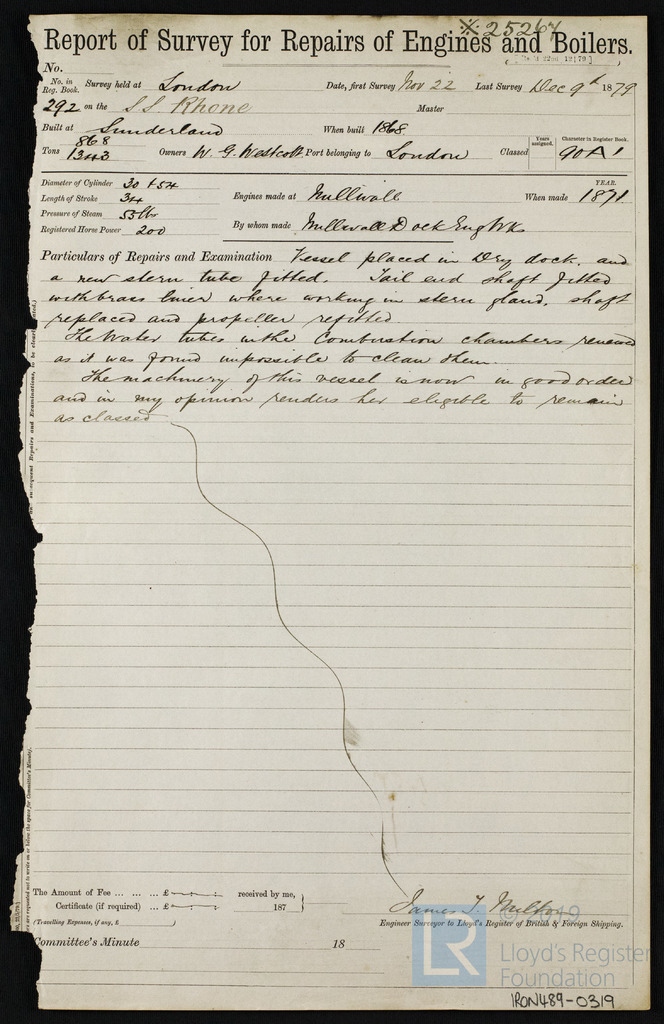 25267
Report of Survey for Repairs of Engines and Boilers.
No.
No. in Reg. Book. Survey held at London Date, first Survey Nov 22 Last Survey Dec 9th 1879
292 on the SS Rhone Master
Built at Sunderland When built 1868
Tons 868 1343 Owners W. G. Westcott Port belonging to London Classed Years assigned. Character in Register Book. 90 A 1
Diameter of Cylinder 30 + 54
Length of Stroke 34
Pressure of Steam 55 lbs
Registered Horse Power 200
Engines made at Millwall When made YEAR. 1871
By whom made Millwall Dock Eng Wks
Particulars of Repairs and Examination Vessel placed in Dry dock, and
a new stern tube fitted. Tail end shaft fitted
with brass liner where working in stern gland, shaft
replaced and propeller refitted.
The Water tubes in the Combustion chambers renewed
as it was found impossible to clean them.
The machinery of this vessel is now in good order
and in my opinion renders her eligible to remain
as classed
The Amount of Fee ... ... ... £ received by me,
Certificate (if required) ... £ 187
(Travelling Expenses, if any, £ )
James T. Milton
Engineer Surveyor to Lloyd's Register of British & Foreign Shipping.
Committee's Minute 18
© 2019
LR Lloyd's Register
Foundation
IRON489-0319